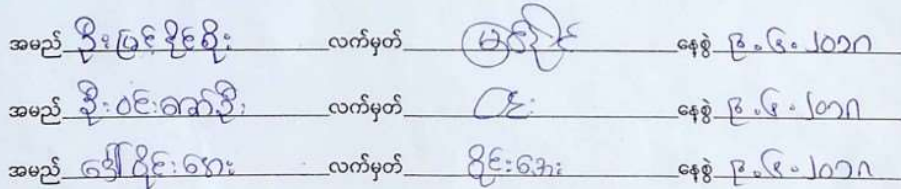 အမည် ဦးမြင့်နိုင်စိုး လက်မှတ် မြင့်နိုင် နေ့စွဲ ၉.၆.၂၀၁၈
အမည် ဦးဝင်းဇော်ဦး လက်မှတ် ဝင်း နေ့စွဲ ၉.၆.၂၀၁၈
အမည် ဒေါ်ဝိုင်းအေး လက်မှတ် ဝိုင်းအေး နေ့စွဲ ၉.၆.၂၀၁၈